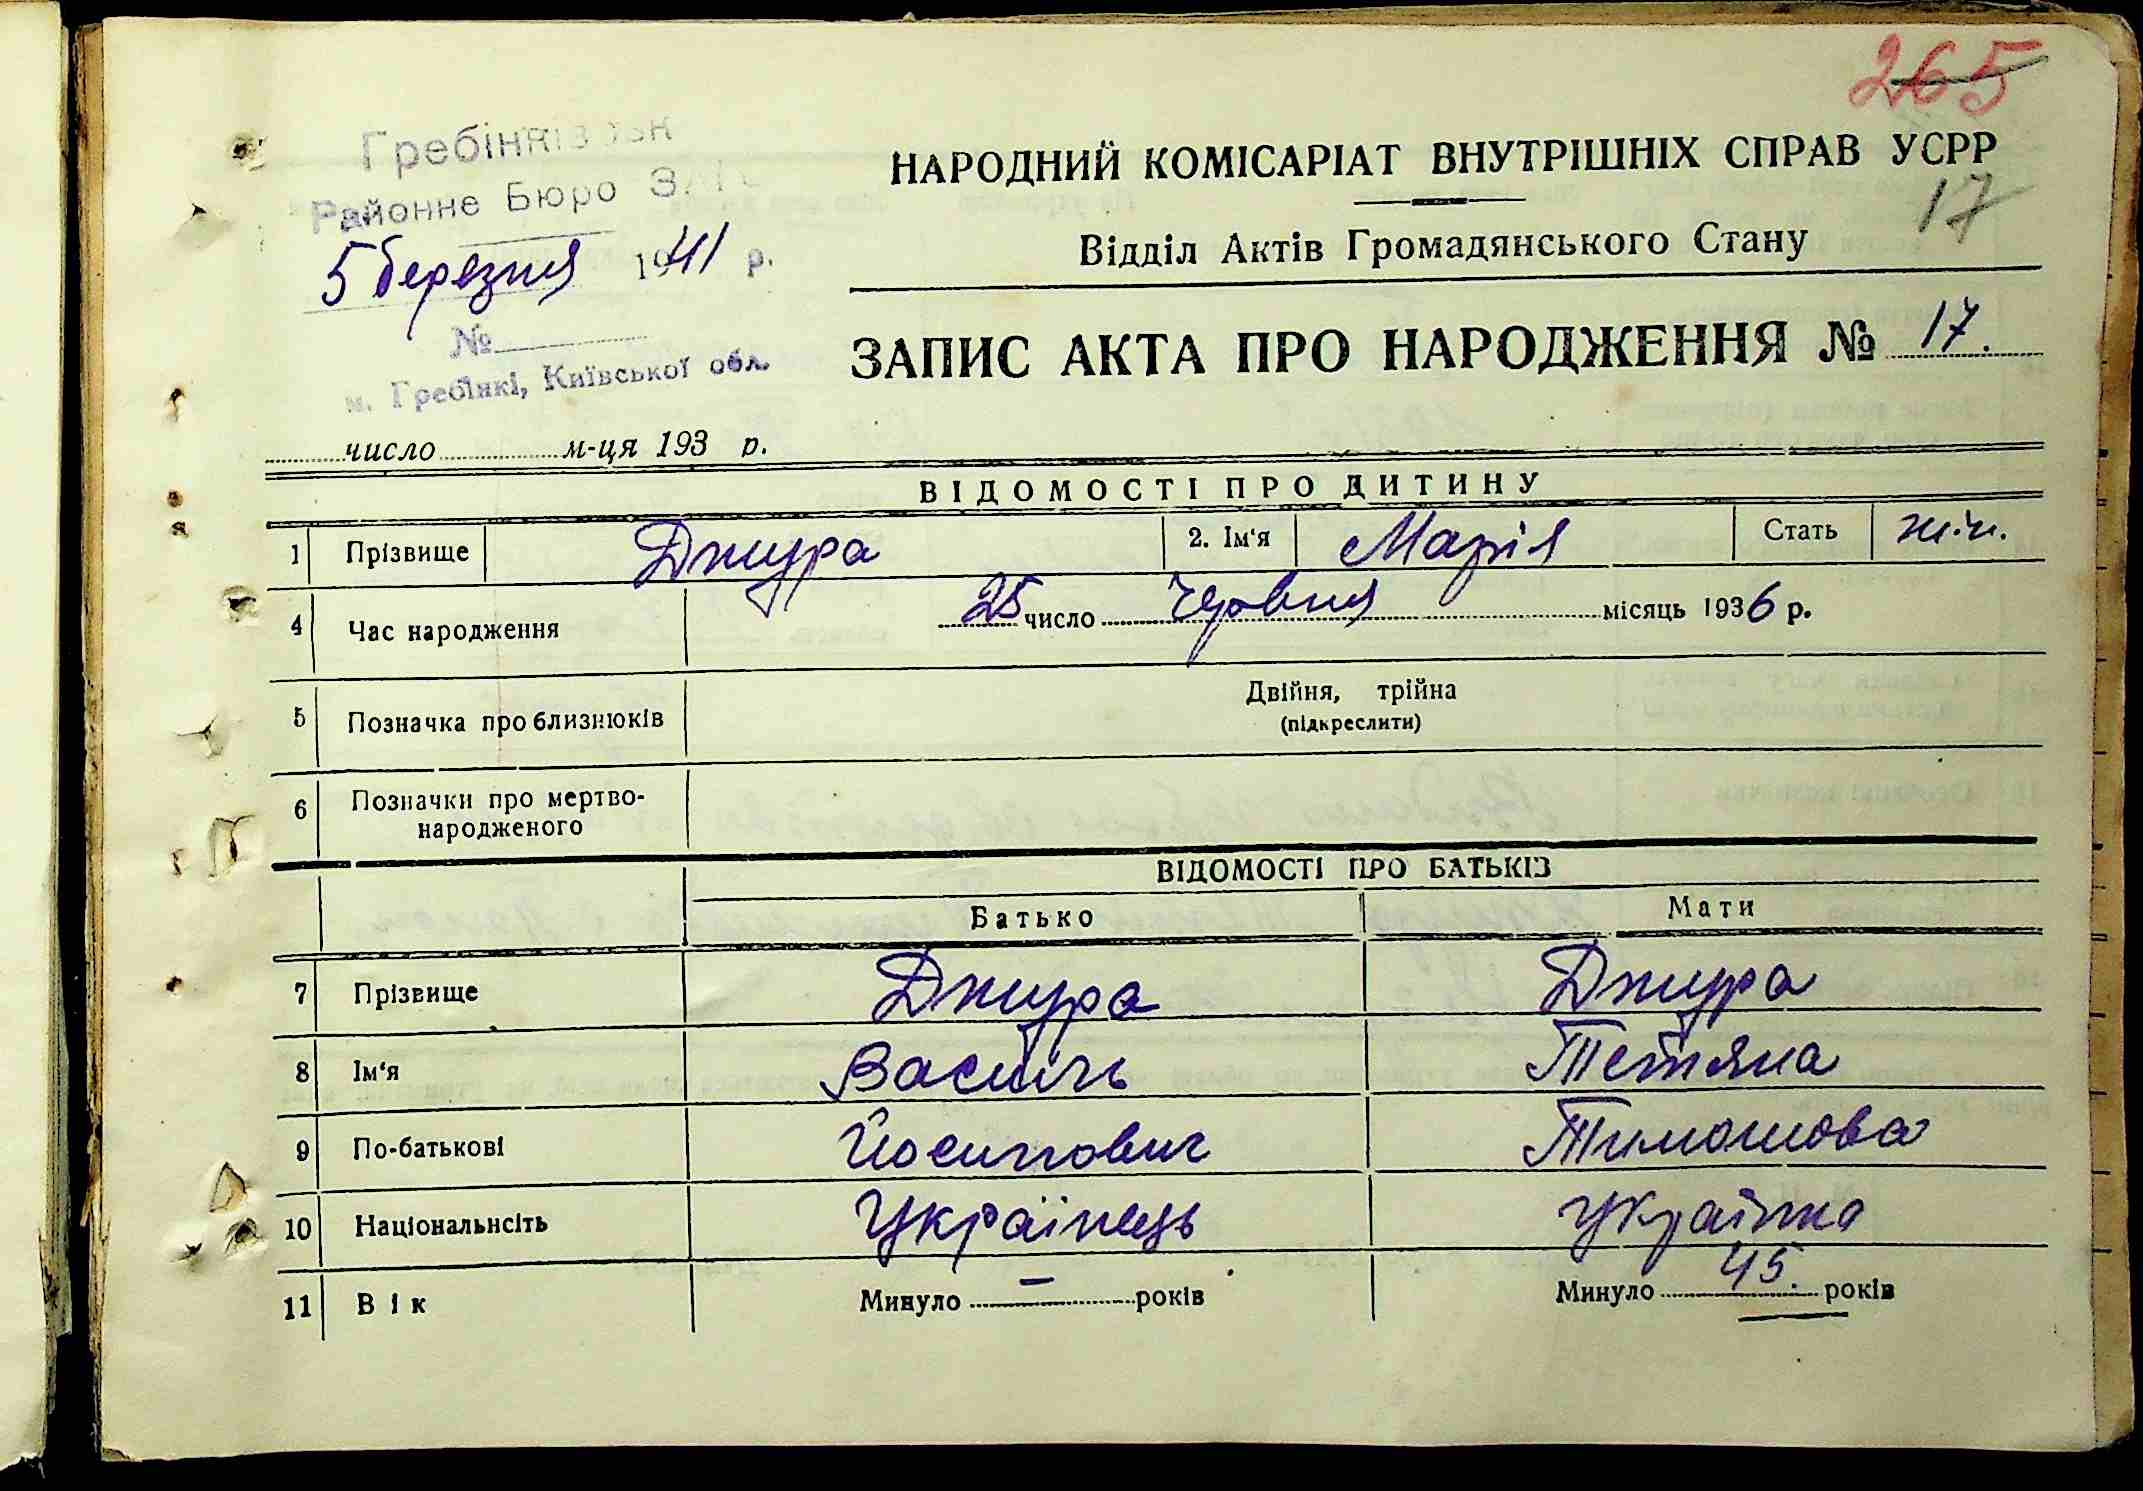 265
Гребінківськ
Районне Бюро ЗАГС
5 березня 1941 р.
№
м. Гребінкі, Київської обл.
НАРОДНИЙ КОМІСАРІАТ ВНУТРІШНІХ СПРАВ УСРР
17
Відділ Актів Громадянського Стану
ЗАПИС АКТА ПРО НАРОДЖЕННЯ № 17.
число м-ця 193 р.
ВІДОМОСТІ ПРО ДИТИНУ
1 Прізвище Джура 2. Ім'я Марія Стать жін.
4 Час народження 25 число Червня місяць 1936 р.
5 Позначка про близнюків Двійня, трійна
(підкреслити)
6 Позначки про мертво-
народженого
ВІДОМОСТІ ПРО БАТЬКІВ
Батько Мати
7 Прізвище Джура Джура
8 Ім'я Василь Тетяна
9 По-батькові Йосипович Тимошова
10 Національнсіть Українець Українка
11 Вік Минуло — років Минуло 45. років